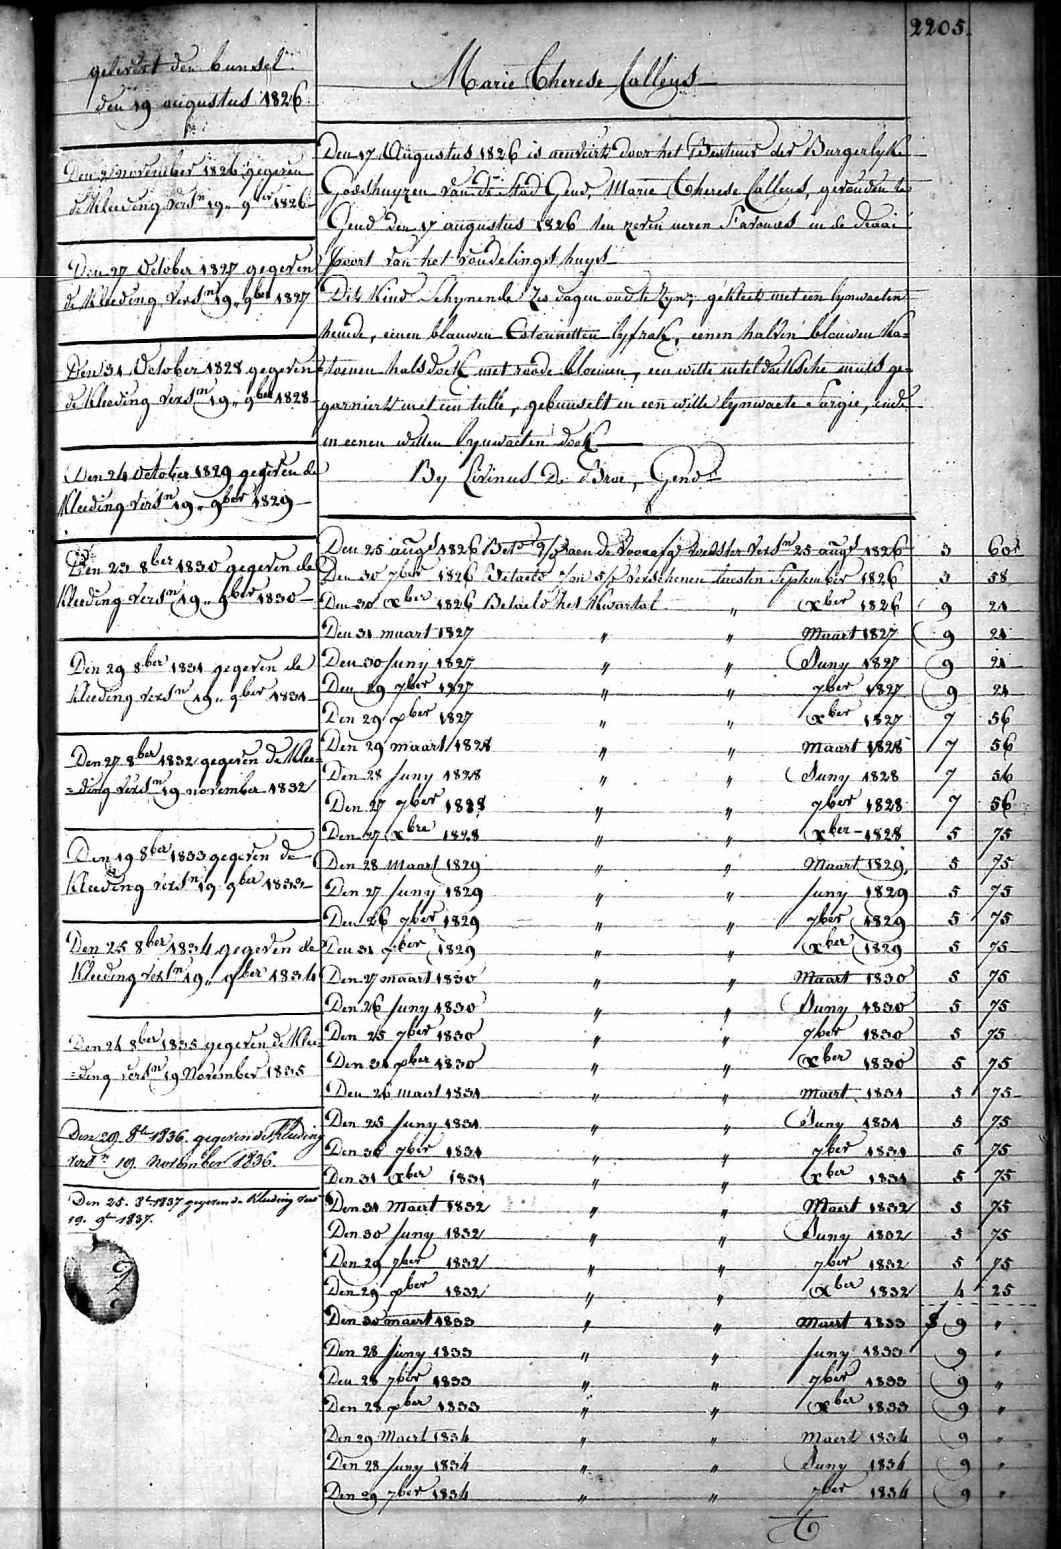 2205.
gelevert den bunsel
den 19 augustus 1826
Den 2 november 1826 gegeven
de Kleeding versn 19 9ber 1826
Den 27 October 1827 gegeven
de Kleeding versn 19 9ber 1827
Den 31 October 1828 gegeven
de Kleeding versn 19 9ber 1828
Den 24 October 1829 gegeven de
Kleeding versn 19 9ber 1829
Den 23 8ber 1830 gegeven de
Kleeding versn 19 9ber 1830
Den 29 8ber 1831 gegeven de
Kleeding versn 19 9ber 1831
Den 27 8ber 1832 gegeven de Klee=
=ding versn 19 november 1832
Den 19 8ber 1833 gegeven de
Kleeding versn 19 9ber 1833
Den 25 8ber 1834 gegeven de
Kleeding versn 19 9ber 1834
Den 24 8ber 1835 gegeven de Klee=
=ding versn 19 November 1835
Den 29 8b 1836 gegeven de Kleeding
versn 19 November 1836.
Den 25. 8b 1837 gegeven de Kleeding vers
19. 9b 1837.
Marie Therese Calleus
Den 17 Augustus 1826 is aenveirt door het Bestuur der Burgerlyke
Godshuyzen van de stad Gend, Marie Therese Calleus, gevonden te
Gend den 17 augustus 1826 ten zeven ueren s'avonds in de draai
poort van het vondelingst huys
Dit Kind schynende zes dagen oud te zyn, gekleet met een lynwaeten
hemde, eenen blauwen Cotonnetten lyfrok, eenen halven blauwen Ka=
=toenen halsdoek met roode bloemen, een witte neteldoeksche muts ge=
garniert met een tulle, gebunselt en een witte lynwaete sargie, ende
in eenen witten lynwaeten doek
By Livinus De Broe, Gendt
Den 25 augt 1826 Bet aen de voorsz voedster versn 25 augt 1826 3 60
Den 30 7ber 1826 Betaelt verschenen lesten September 1826 3 58
Den 30 Xber 1826 Betaelt het Kwartal " Xber 1826 9 24
Den 31 maart 1827 " " Maart 1827 9 24
Den 30 Juny 1827 " " Juny 1827 9 24
Den 29 7ber 1827 " " 7ber 1827 9 24
Den 29 Xber 1827 " " Xber 1827 7 56
Den 29 maart 1828 " " Maart 1828 7 56
Den 28 Juny 1828 " " Juny 1828 7 56
Den 27 7ber 1828 " " 7ber 1828 7 56
Den 27 Xbre 1828 " " Xber 1828 5 75
Den 28 Maart 1829 " " Maart 1829 5 75
Den 27 Juny 1829 " " Juny 1829 5 75
Den 26 7ber 1829 " " 7ber 1829 5 75
Den 31 Xber 1829 " " Xber 1829 5 75
Den 27 maart 1830 " " Maart 1830 5 75
Den 26 Juny 1830 " " Juny 1830 5 75
Den 25 7ber 1830 " " 7ber 1830 5 75
Den 31 Xber 1830 " " Xber 1830 5 75
Den 26 maert 1831 " " Maert 1831 5 75
Den 25 Juny 1831 " " Juny 1831 5 75
Den 30 7ber 1831 " " 7ber 1831 5 75
Den 31 Xber 1831 " " Xber 1831 5 75
Den 31 Maert 1832 " " Maert 1832 5 75
Den 30 Juny 1832 " " Juny 1832 5 75
Den 29 7ber 1832 " " 7ber 1832 5 75
Den 29 Xber 1832 " " Xber 1832 4 25
Den 30 maert 1833 " " Maert 1833 9 "
Den 28 Juny 1833 " " Juny 1833 9 "
Den 28 7ber 1833 " " 7ber 1833 9 "
Den 28 Xber 1833 " " Xber 1833 9 "
Den 29 Maert 1834 " " Maert 1834 9 "
Den 28 Juny 1834 " " Juny 1834 9 "
Den 29 7ber 1834 " " 7ber 1834 9 "